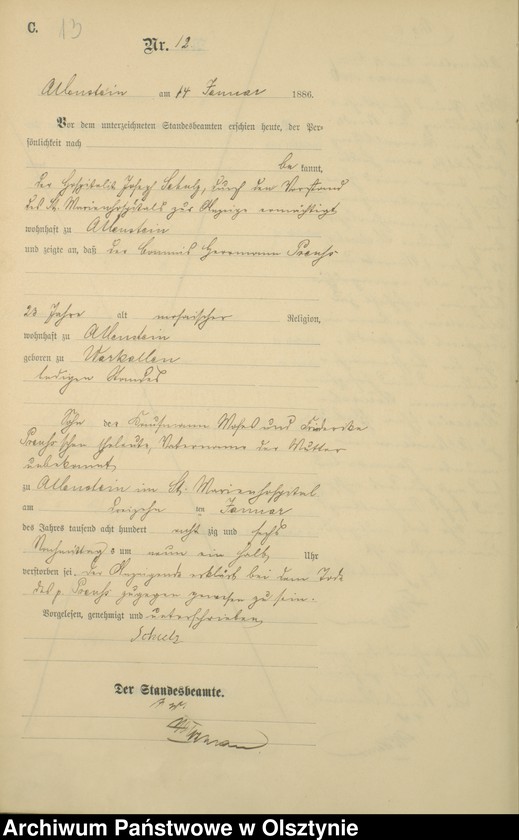 C. 13
Nr. 12
Allenstein am 14 Januar 1886.
Vor dem unterzeichneten Standesbeamten erschien heute, der Per=
sönlichkeit nach
be kannt,
der Hospitalit Joseph Schulz, durch den Vorstand
des St. Marienhospitals zur Anzeige ermächtigt
wohnhaft zu Allenstein
und zeigte an, daß der Commis Herrmann
Jahre alt mosaischer Religion,
wohnhaft zu Allenstein
geboren zu
ledigen Standes
Sohn der Kaufmann Moses und Friederike
schen Eheleute, Vatername der Mutter
unbekannt
zu Allenstein im St. Marienhospital
am dreizehn ten Januar
des Jahres tausend acht hundert acht zig und sechs
Vormittags um neun ein halb Uhr
verstorben sei. Der Anzeigende erklärt bei dem Tode
des p. zugegen gewesen zu sein.
Vorgelesen, genehmigt und unterschrieben
Schulz
Der Standesbeamte.
Archiwum Państwowe w Olsztynie